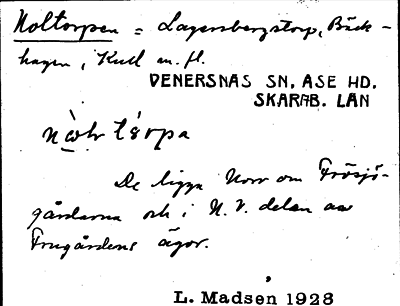 Noltorpen = Lagersbergstorp, Bäck-
hagen, Kull m. fl.
VENERSNAS SN, ASE HD.
SKARAB. LAN
De ligga Norr om Frösjö-
gårdarna och i N. V. delen av
Frugårdens ägor.
L. Madsen 1928